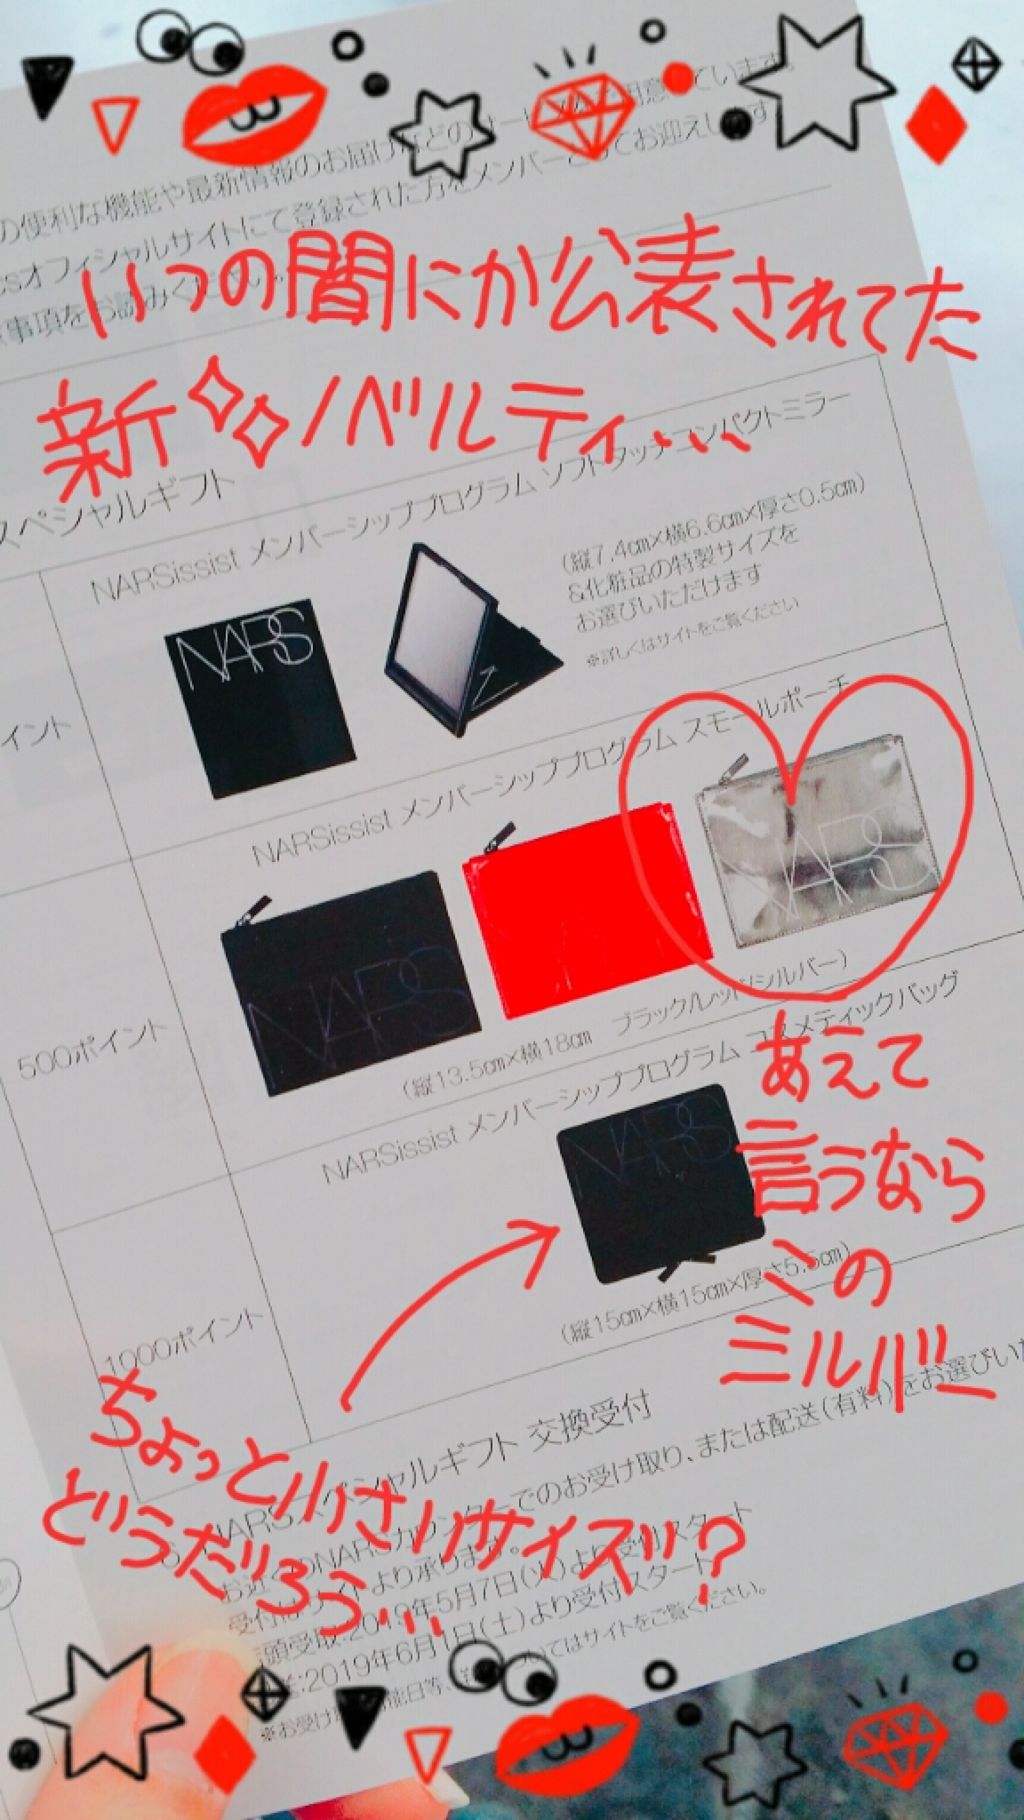 の便利な機能や最新情報のお届けなどのサービスをご用意しています。
csオフィシャルサイトにて登録された方をメンバーとしてお迎えします
事項をお読みください。
いつの間にか公表されてた
新ノベルティ...
スペシャルギフト
イント
NARSissist メンバーシッププログラム ソフトタッチコンパクトミラー
NARS
(縦7.4cm×横6.6cm×厚さ0.5cm)
&化粧品の特製サイズを
お選びいただけます
※詳しくはサイトをご覧ください
500ポイント
NARSissist メンバーシッププログラム スモールポーチ
NARS
NARS
(縦13.5cm×横18cm ブラック/レッド/シルバー)
1000ポイント
NARSissist メンバーシッププログラム コスメティックバッグ
NARS
(縦15cm×横15cm×厚さ5.5cm)
あえて
言うなら
この
ミルバー
ちょっと小さいサイズ!?
どうだろう...
NARSスペシャルギフト 交換受付
お近くのNARSカウンターでのお受け取り、または配送(有料)をお選びいた
受付はサイトより承ります。
店頭受取:2019年5月7日(火)より受付スタート
配送:2019年6月1日(土)より受付スタート